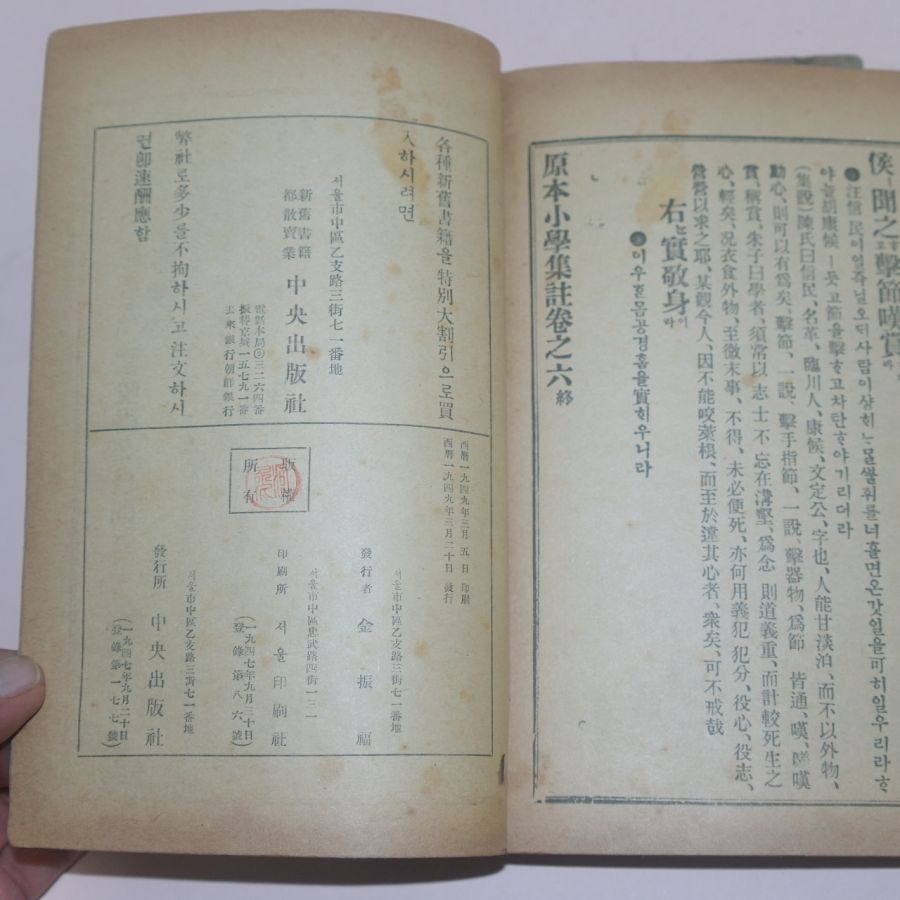 侯ㅣ聞之고擊節嘆賞라
汪信民이일즉닐오디사람이샹히ᄂᆞ믈쑬휘를너흘면온갓일을可히일우리라ᄒᆞ
야늘胡康候ㅣ듯고節을擊ᄒᆞ고차탄ᄒᆞ야기리더라
(集說)陳氏曰信民、名革、臨川人、康候、文定公、字也、人能甘淡泊、而不以外物、
動心、則可以有爲矣、擊節、一說、擊手指節、一說、擊器物、爲節 皆通、嘆、嗟嘆
賞、稱賞、朱子曰學者、須常以 志士不 忘在溝壑、爲念 則道義重、而計較死生之
心、輕矣、况衣食外物、至微末事、不得、未必便死、亦何用義犯 犯分、役心、役志、
營營以求之耶、某觀今人、因不能咬菜根、而至於違其心者、衆矣、可不戒哉
右ᄂᆞᆫ實敬身이라
이우흔몸공경홈을實히우니라
原本小學集註卷之六 終
各種新舊書籍을 特別大割引으로買
入하시려면
서울市中區乙支路三街七一番地
新舊書籍
都散賣業 中央出版社
電話本局②三二六四番
振替京城一五七九一番
去來銀行朝鮮銀行
弊社로多少를不拘하시고 注文하시
면卽速酬應함
西曆一九四九年三月 五 日 印刷
西曆一九四九年三月二十日 發行
版權
所有
서울市中區乙支路三街七一番地
發行者 金振福
서울市中區忠武路四街一三一
印刷所 서울印刷社
(一九四七年九月三十日
登錄第八六號)
서울市中區乙支路三街七一番地
發行所 中央出版社
(一九四七年九月二十日
登錄第一七七號)